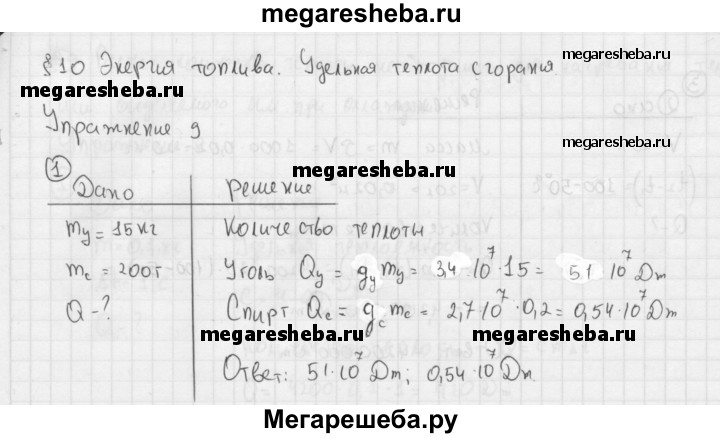 megaresheba.ru
§10 Энергия топлива. Удельная теплота сгорания
megaresheba.ru
megaresheba.ru
Упражнение 9
megaresheba.ru
megaresheba.ru
1
Дано
решение
mу = 15 кг
Количество теплоты
mс = 200т
Уголь Qу = gу mу = 3,4 · 10^7 · 15 = 51 · 10^7 Дж
Q - ?
Спирт Qс = gс mс = 2,7 · 10^7 · 0,2 = 0,54 · 10^7 Дж
megaresheba.ru
megaresheba.ru
Ответ: 51 · 10^7 Дж; 0,54 · 10^7 Дж.
Мегарешеба.ру